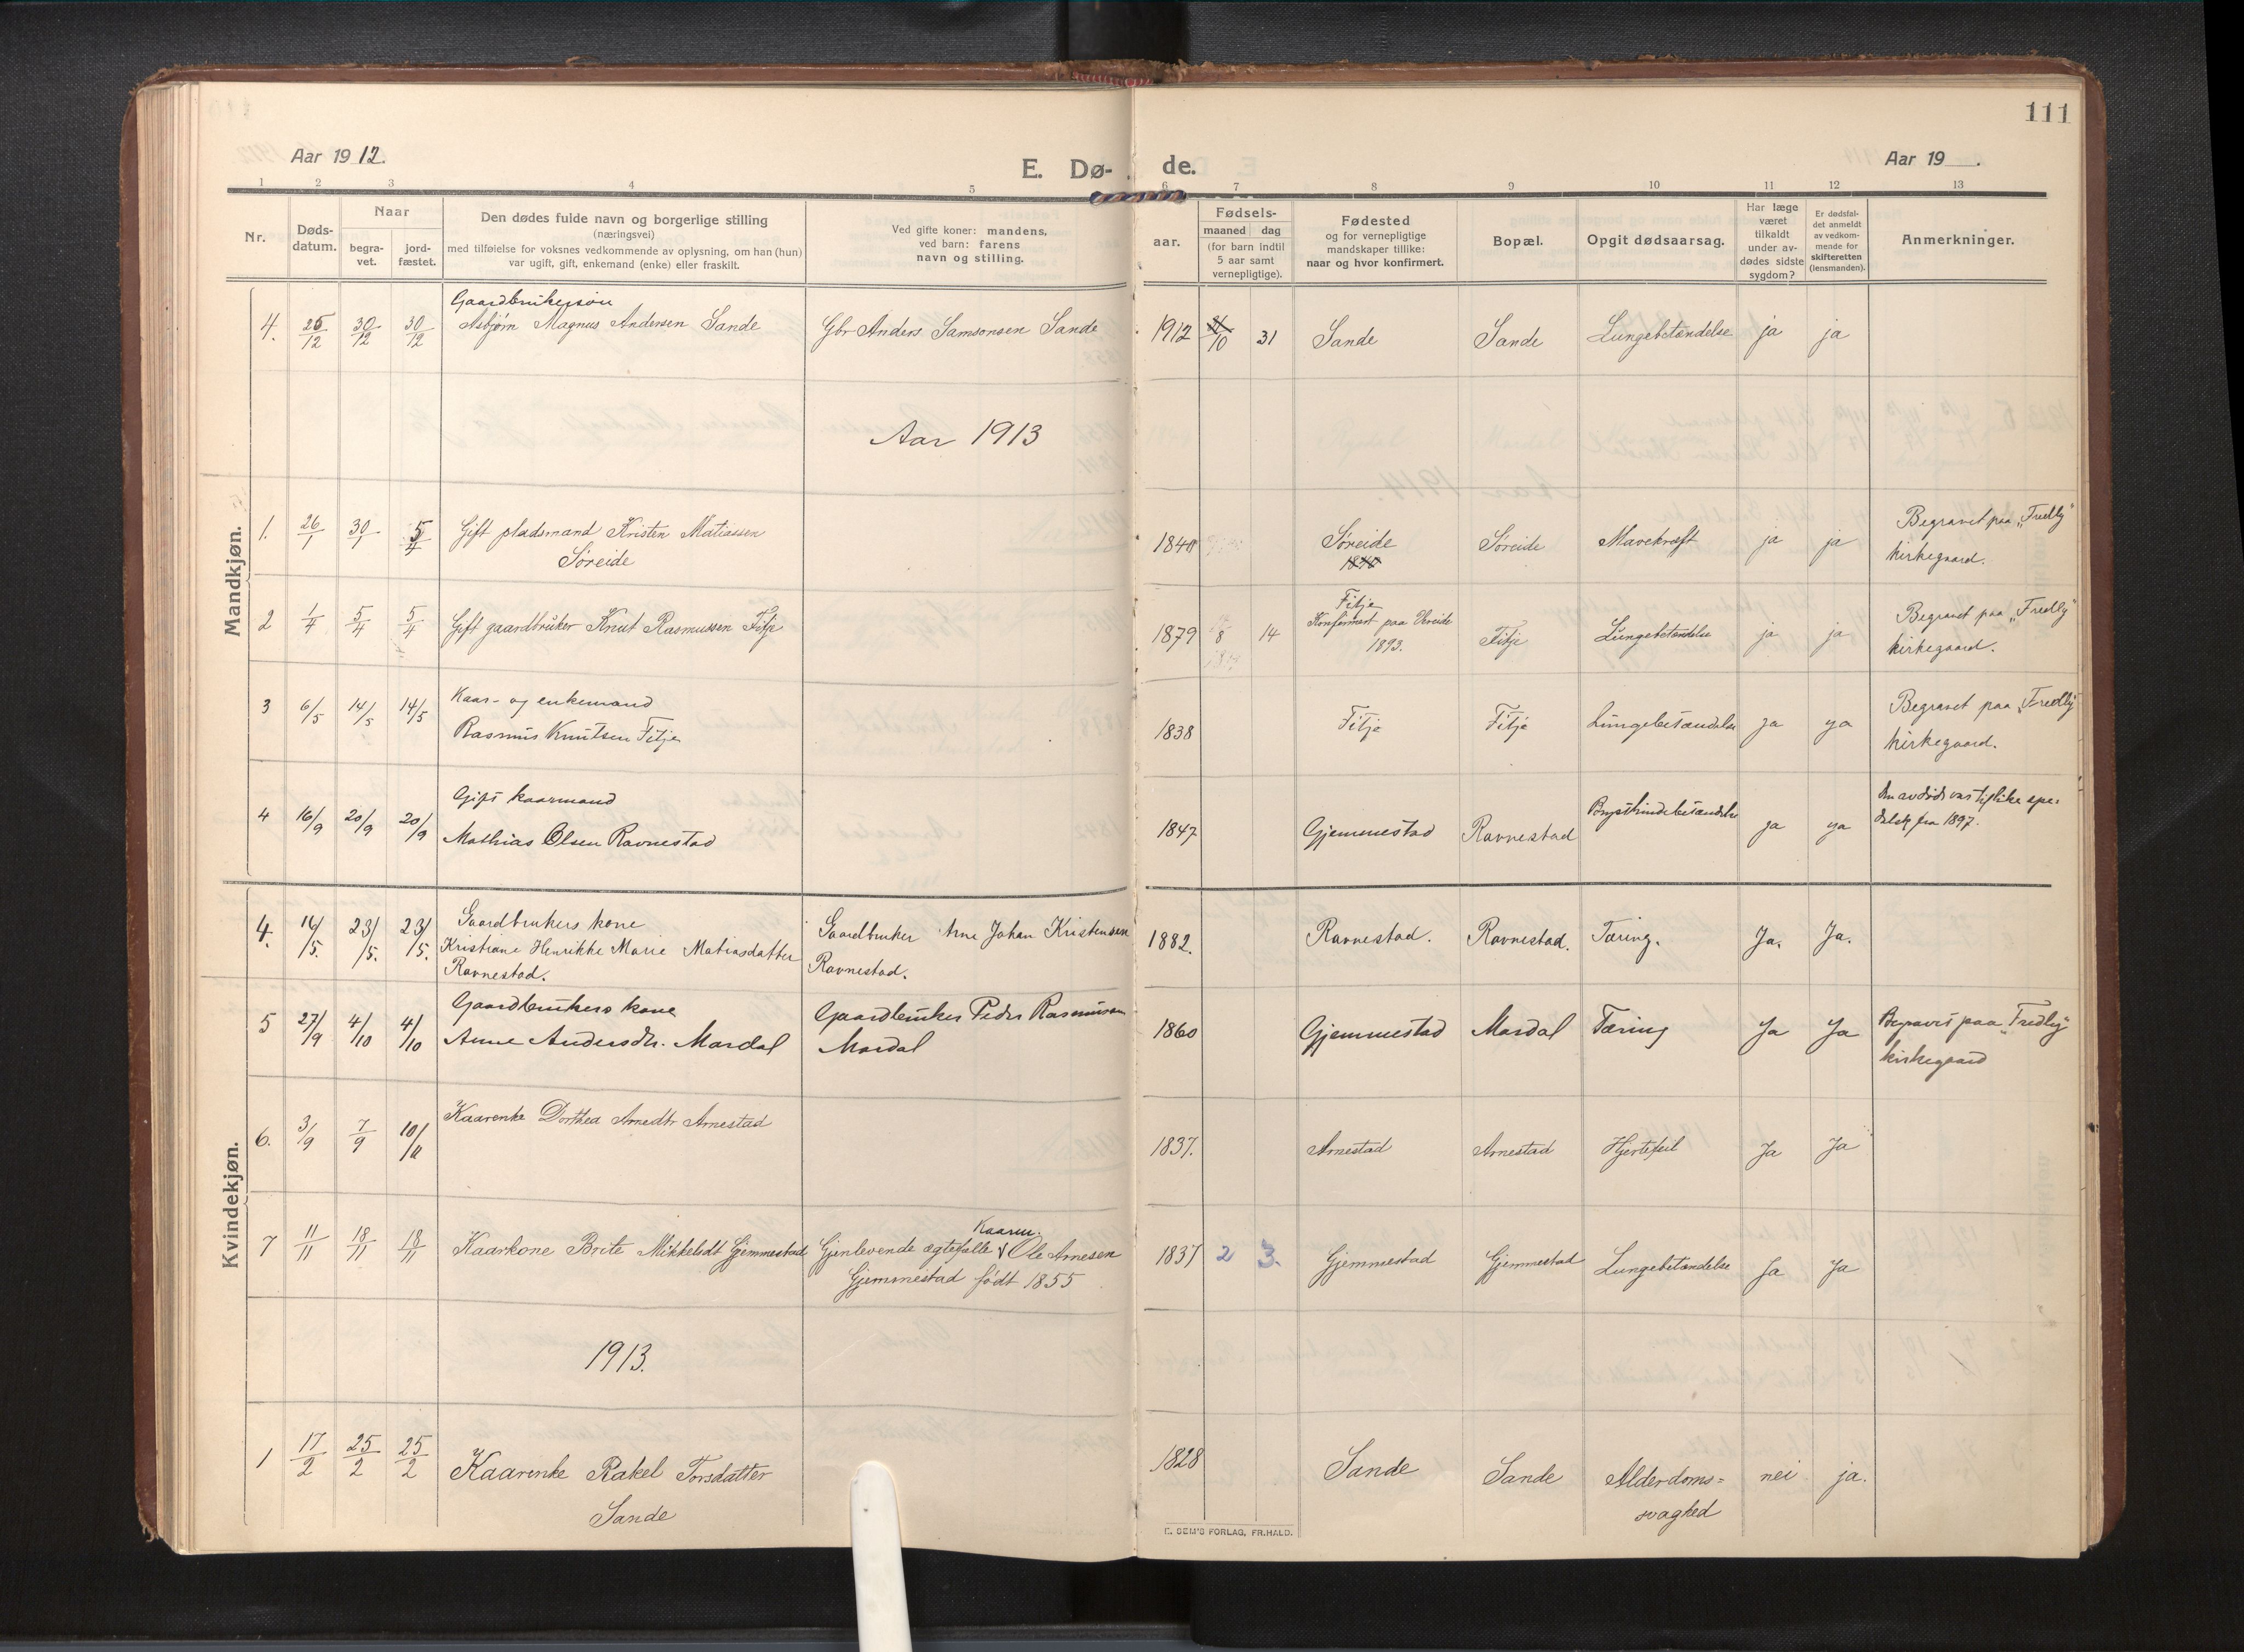 111
Aar 1912.
E. Dø-
de.
Aar 19 .
1 2 3 4 5 6 7 8 9 10 11 12 13
Nr.
Døds-
datum.
Naar
begra-
vet.
jord-
fæstet.
Den dødes fulde navn og borgerlige stilling
(næringsvei)
med tilføielse for voksnes vedkommende av oplysning, om han (hun)
var ugift, gift, enkemand (enke) eller fraskilt.
Ved gifte koner: mandens,
ved barn: farens
navn og stilling.
aar.
Fødsels-
maaned dag
(for barn indtil
5 aar samt
vernepligtige).
Fødested
og for vernepligtige
mandskaper tillike:
naar og hvor konfirmert.
Bopæl.
Opgit dødsaarsag.
Har læge
været
tilkaldt
under av-
dødes sidste
sygdom?
Er dødsfal-
det anmeldt
av vedkom-
mende for
skifteretten
(lensmanden).
Anmerkninger.
Mandkjøn.
Gaardbrukersøn
4. 25/12 30/12 30/12 Asbjørn Magnus Andersen Sande Gbr Anders Samsonsen Sande 1912 /10 31 Sande Sande Lungebetændelse ja ja
Aar 1913
1. 26/1 30/1 5/4 Gift pladsmand Kristen Matiassen Søreide Søreide Mavekræft ja ja Begravet paa "Fredly"
Søreide kirkegaard.
Fitje
2 1/4 5/4 5/4 Gift gaardbruker Knut Rasmussen Fitje 1879 8 14 Konfirmert paa Vereide Fitje Lungebetændelse ja ja Begravet paa "Fredly"
1893. kirkegaard.
Kaar- og enkemand
3 6/5 14/5 14/5 Rasmus Knutsen Fitje 1838 Fitje Fitje Lungebetændelse ja ja Begravet paa "Fredly"
kirkegaard.
Gift kaarmand
4 16/9 20/9 20/9 Mathias Olsen Ravnestad 1847 Gjemmestad Ravnestad Brysthindebetændelse ja ja Den avdøde var tillike spe-
dalsk fra 1897.
Kvindekjøn.
Gaardbrukers kone
4. 16/5. 23/5. 23/5. Kristiane Henrikke Marie Matiasdatter Gaardbruker Arne Johan Kristensen 1882. Ravnestad. Ravnestad. Tæring. Ja. Ja.
Ravnestad. Ravnestad.
Gaardbrukers kone
5 27/9 4/10 4/10 Anne Andersdtr. Mardal Gaardbruker Peder Rasmussen 1860 Gjemmestad Mardal Tæring Ja Ja Begravet paa "Fredly"
Mardal kirkegaard
6. 3/9 7/9 10/11 Kaarenke Dorthea Arnedtr Arnestad 1837. Arnestad Arnestad Hjertefeil Ja Ja
Kaarm.
7 11/11 18/11 18/11 Kaarkone Brite Mikkelsdt Gjemmestad Gjenlevende ægtefælle Ole Arnesen 1837 2 3. Gjemmestad Gjemmestad Lungebetændelse Ja Ja
Gjemmestad født 1855
1913.
1 17/2 25/2 25/2 Kaarenke Rakel Torsdatter 1828 Sande Sande Alderdoms= nei ja.
Sande svaghed
E. SEM'S FORLAG, FR.HALD.